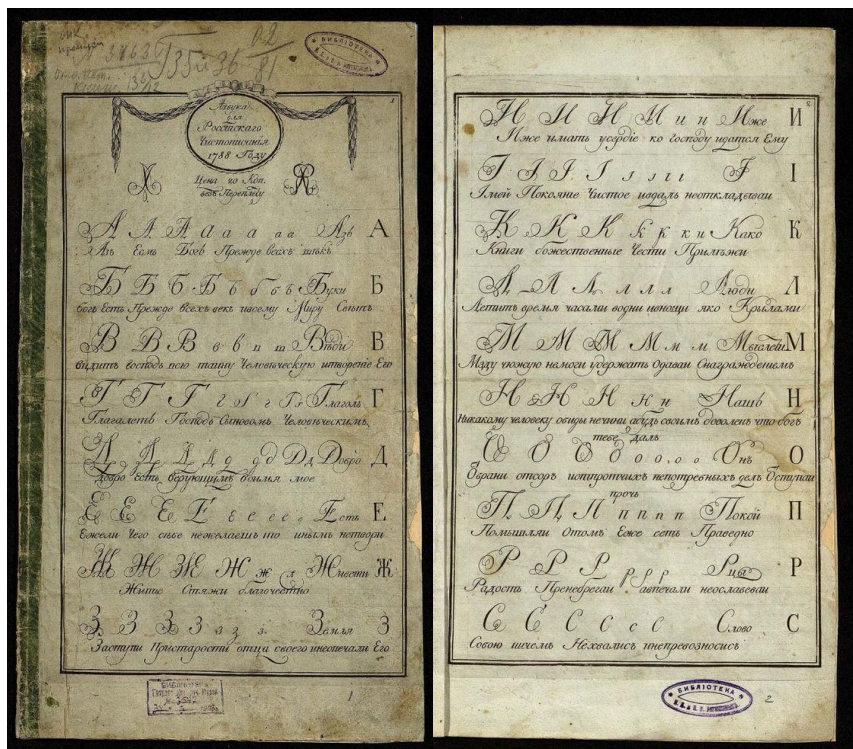 Азбука
для
Россійскаго
Чистописанія
1788 Году
Цена 20 Коп.
безъ Переплету
1
А А А а а а а Азъ А
Азъ Есмь Богъ Прежде всехъ
Б Б Б Б б б б Буки Б
богъ Есть Прежде всехъ векъ Миру
В В В в в Вѣди В
видитъ господь всю таину Человѣческую Его
Г Г Г г г г Глаголь Г
Глаголетъ Господь Сыновомъ Человѣческимъ,
Д Д Д Д д д д Добро Д
Добро есть верующимъ воимя мое
Е Е Е Е е е е е Есть Е
Ежели чего себе нежелаешъ то инымъ
Ж Ж Ж Ж ж ж Живѣти Ж
Житие Стяжи благочестно
З З З З з з з Земля З
Заступи Пристарости отца своего инеопечали Его
1
2
И И И И и и Иже И
Иже имать усердіе ко господу идатся Ему
І І І І і і і І І
Імей Покояние Чистое неоткладываи
К К К К к к Како К
Книги божественные Чести Прилѣжи
Л Л Л л л л Люди Л
Летитъ время часами водни инощи яко Крылами
М М М М м м Мыслете М
Мзду чюжую немоги удержать Одаваи Снаграждениемъ
Н Н Н Н н н Нашъ Н
Никакому человеку обиды нечини абудь своимъ доволенъ что богъ
тебе далъ
О О О о о о о Онъ О
непотребныхъ делъ Оступаи
прочь
П П П п п п п Покой П
Помышляи Отомъ Еже есть Праведно
Р Р Р р р р Рцы Р
Радость Пренебрегаи авпечали неослабеваи
С С С С с С Слово С
Собою ничемъ Нехвались инепревозносись
БИБЛІОТЕКА
2